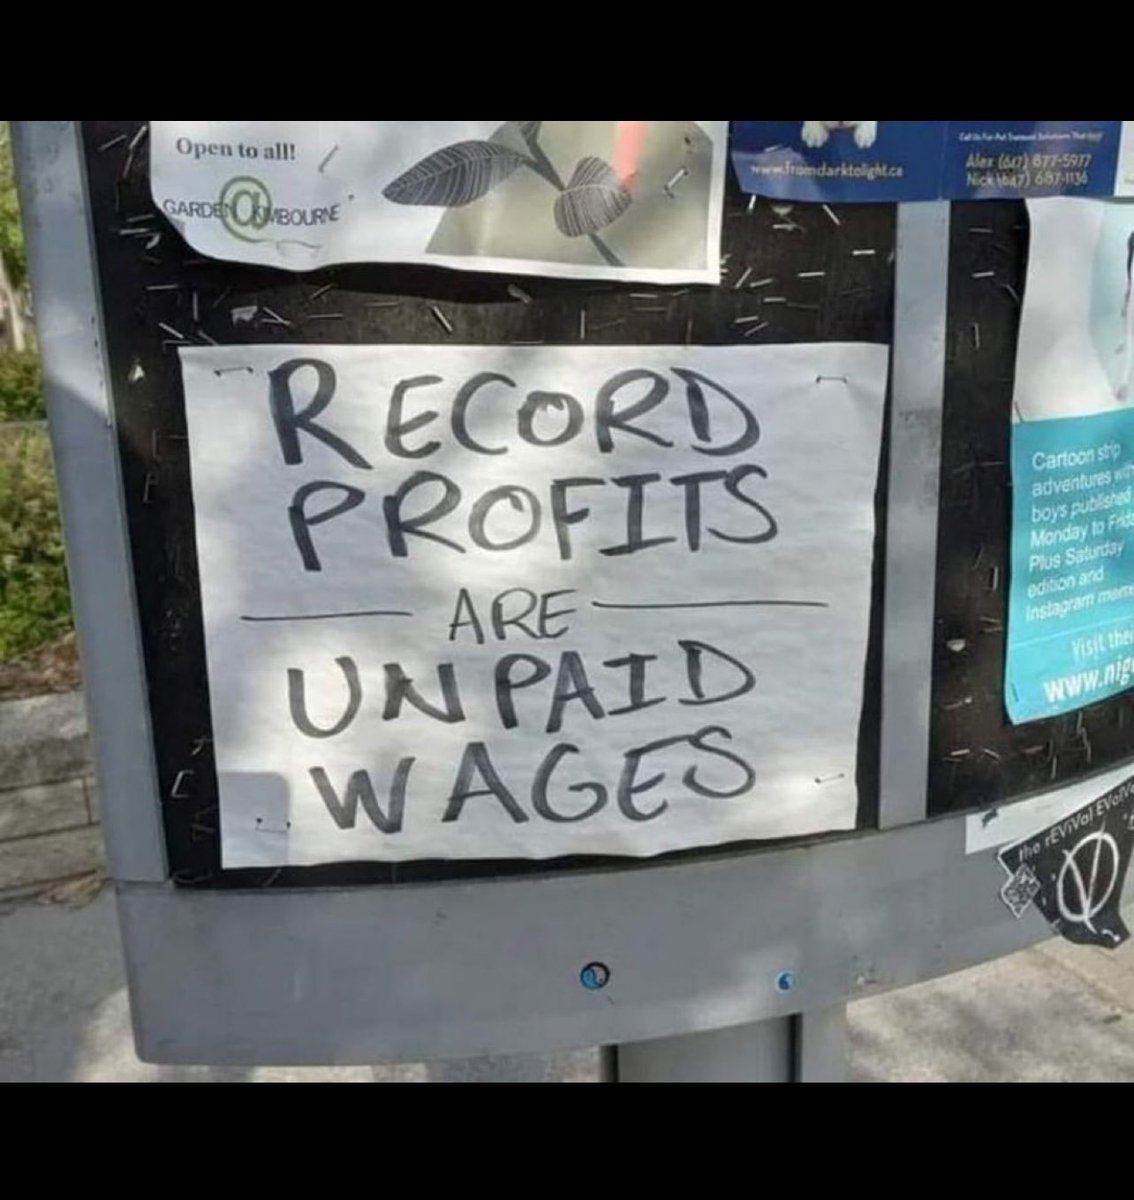 Open to all!
GARDEN@KIMBOURNE
www.fromdarktolight.ca
Alex (647) 877-5977
Nick (647) 687-1136
RECORD
PROFITS
ARE
UNPAID
WAGES
Cartoon strip
adventures
boys published
Monday to
Plus Saturday
edition and
Instagram
Visit
the rEViVal